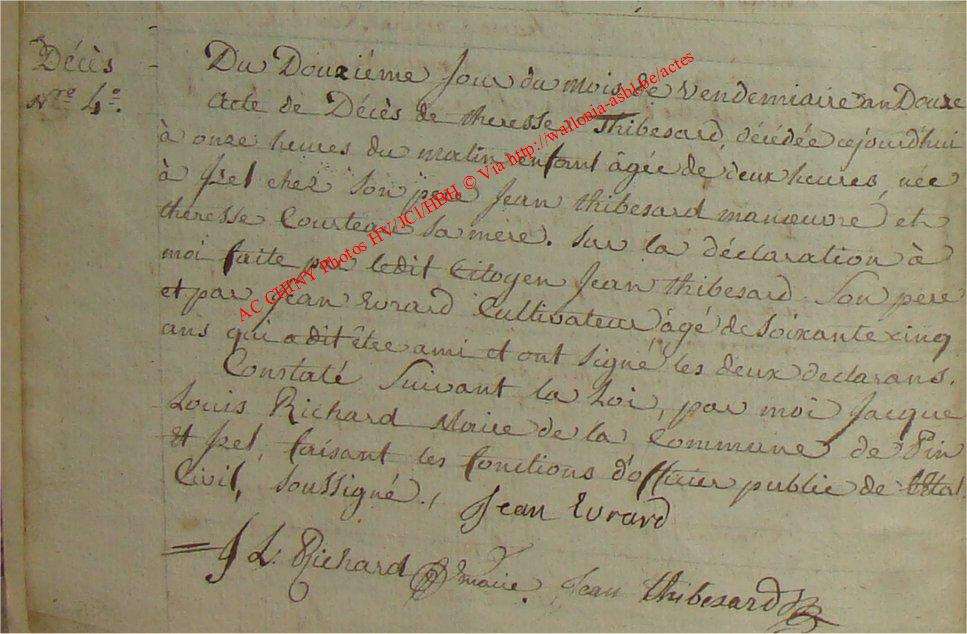 Décès
Nro 4o.
Du Douzième Jour du mois de Vendemiaire an Douze
Acte de Décès de theresse Thibesard, décédée cejourd'hui
à onze heures du matin enfant âgée de deux heures, née
à Izel chez Son père Jean thibesard manœuvre et
theresse Courteau Sa mère. Sur la déclaration à
moi faite par ledit Citoyen Jean thibesard Son père
et par Jean Evrard Cultivateur âgé de Soixante cinq
ans qui a dit être ami et ont Signé les deux declarans.
Constaté Suivant la Loi, par moi Jacque
Louis Richard Maire de la Commune de Pin
et Izel, faisant les fonctions d'officier public de l'Etat
Civil, Soussigné.
Jean Evrard
J L. Richard maire. Jean thibesard
AC CHINY Photos HV/JCl/HBH © Via http://wallonia-asbl.be/actes